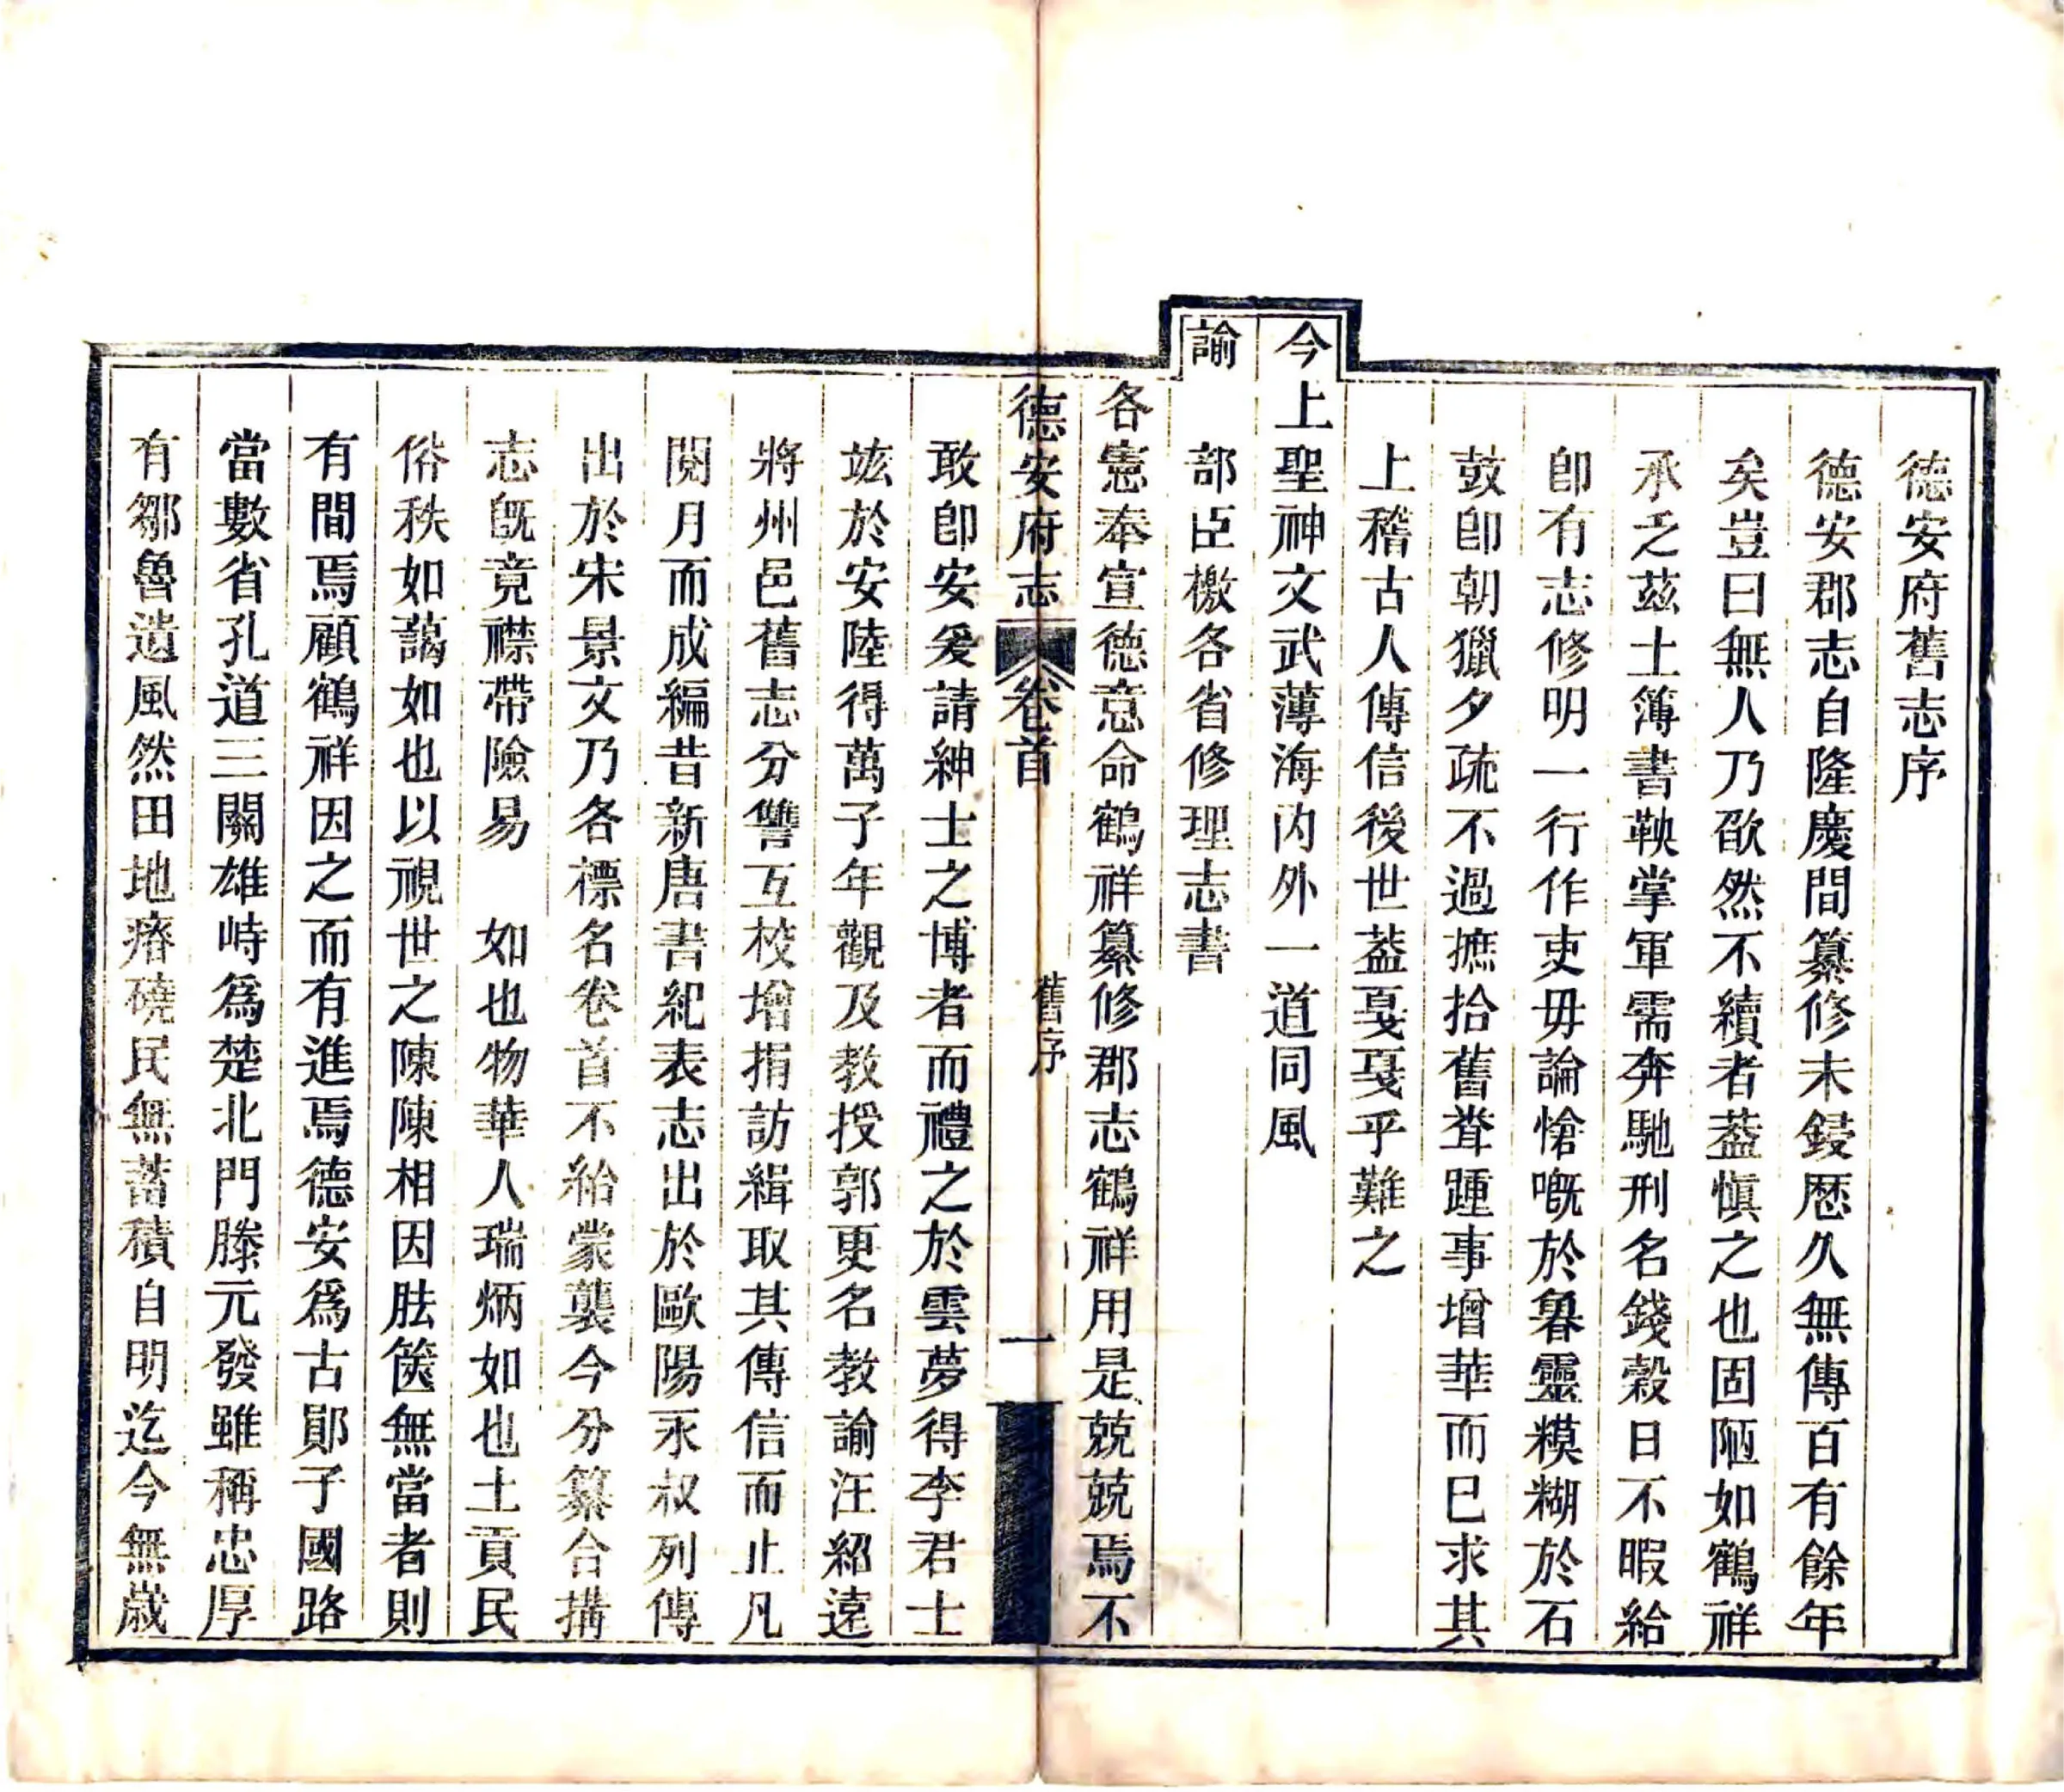 德安府舊志序
德安郡志自隆慶間纂修未鋟歷久無傳百有餘年
矣豈曰無人乃欿然不續者葢慎之也固陋如鶴祥
承乏茲土簿書鞅掌軍需奔馳刑名錢穀日不暇給
卽有志修明一行作吏毋論愴嘅於魯靈糢糊於石
鼓卽朝獵夕疏不過摭拾舊聳踵事增華而已求其
上稽古人傳信後世葢戞戞乎難之
今上聖神文武薄海內外一道同風
諭 部臣檄各省修理志書
各憲奉宣德意命鶴祥纂修郡志鶴祥用是兢兢焉不
德安府志 卷首 舊序 一
敢卽安爰請紳士之博者而禮之於雲夢得李君士
竑於安陸得萬子年觀及教授郭更名教諭汪紹遠
將州邑舊志分讐互校增捐訪緝取其傳信而止凡
閱月而成編昔新唐書紀表志出於歐陽永叔列傳
出於宋景文乃各標名卷首不給蒙襲今分纂合搆
志旣竟襟帶險易 如也物華人瑞炳如也土貢民
俗秩如藹如也以視世之陳陳相因胠篋無當者則
有間焉顧鶴祥因之而有進焉德安爲古鄖子國路
當數省孔道三關雄峙爲楚北門滕元發雖稱忠厚
有鄒魯遺風然田地瘠磽民無蓄積自明迄今無歲